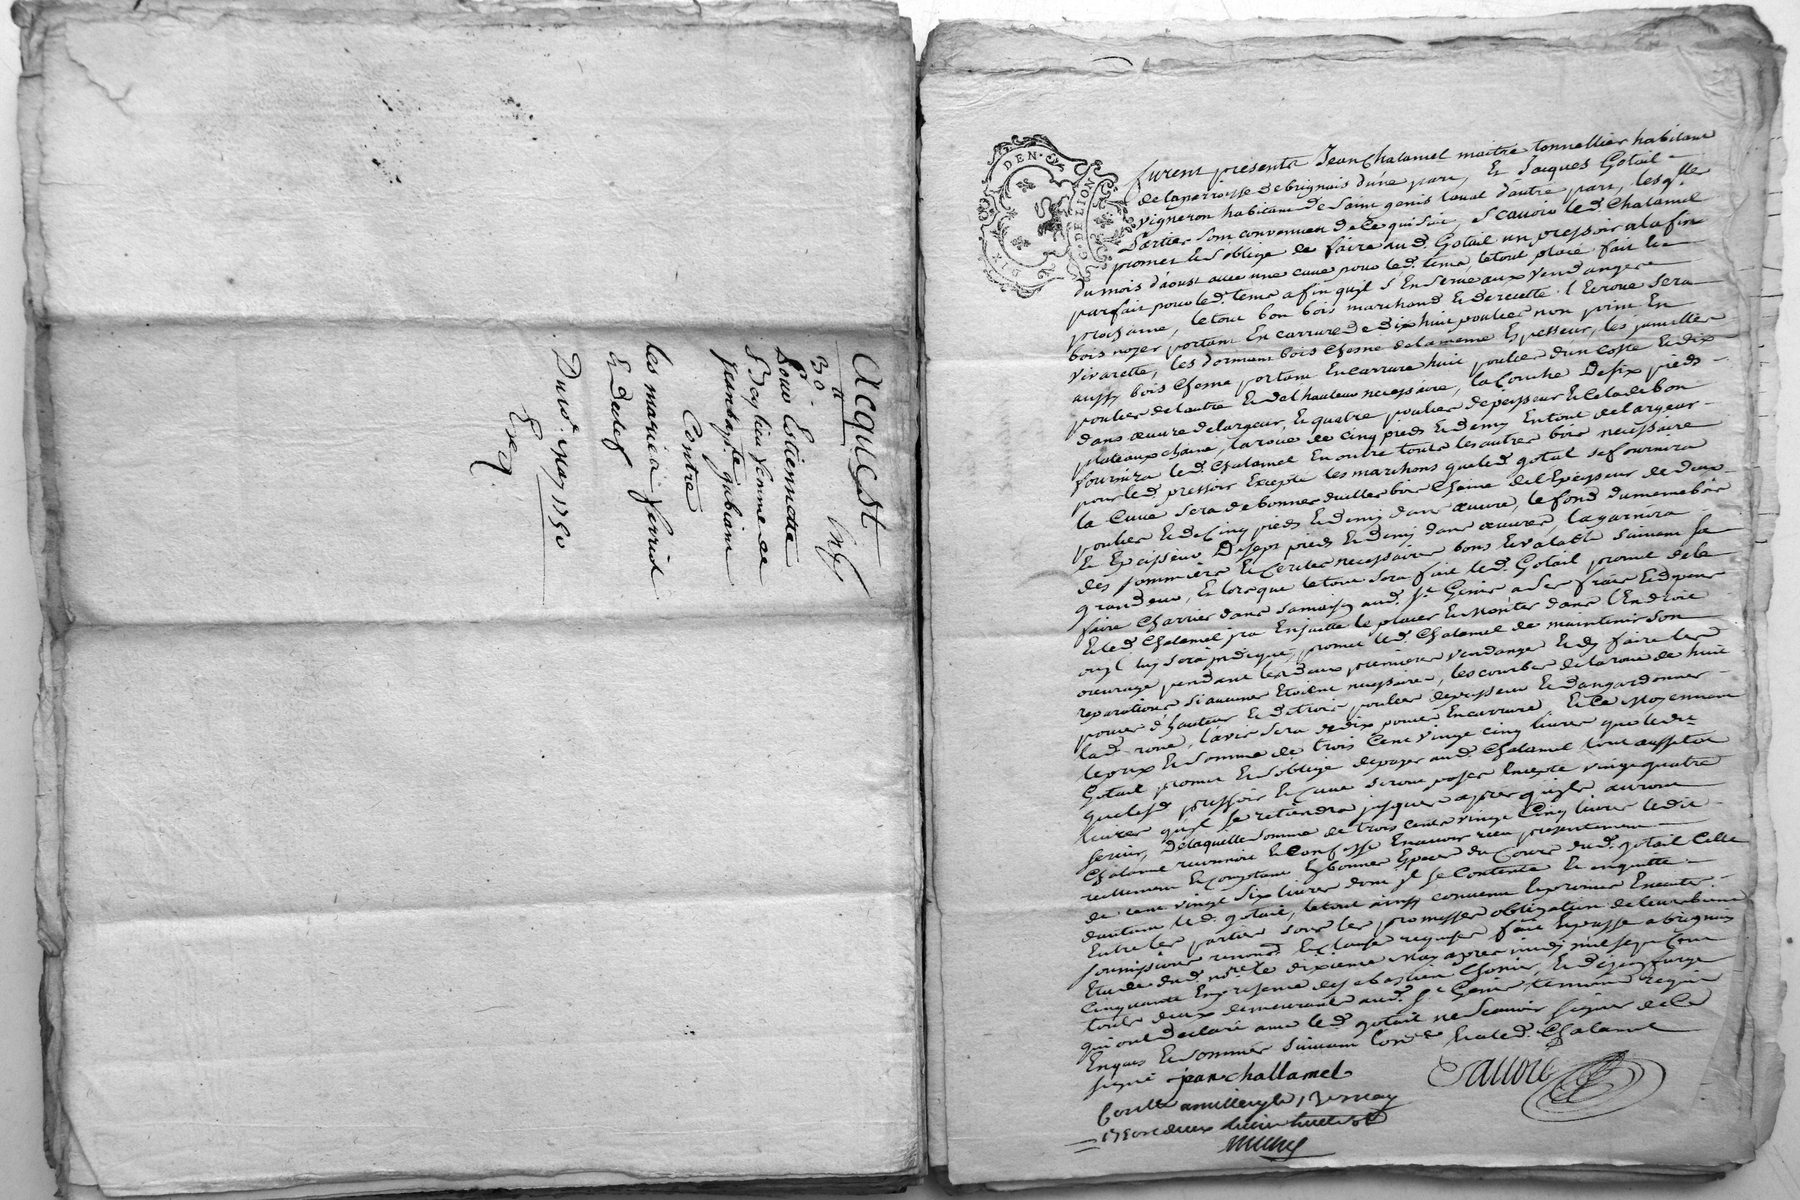 acquest
30
pour Estiennette
Contre
les mariés
Du 10e May 1750
Exq.
GEN. DE LION
DIX DEN.
furent presents Jean Chalamel maitre tonnellier habitant
de la parroisse de brignais d'une part, Et Jacques Gotail
vigneron habitant de saint genis laval d'autre part, lesqlles
parties sont convenues de ce qui suit, scavoir led. Chalamel
promet et s'oblige de faire aud. Gotail un pressoir a la fin
du mois d'aoust avec une cuve pour led. tems, le tout placé fait et
parfait pour led. tems afin qu'il s'en serve aux vendanges
prochaine, le tout bon bois marchand et de recette. l'Ecroue sera
bois noyer portant En carrure de dix huit poulces non point En
vivarette, les dormant bois chesne de la meme Espesseur, les jumelles
aussy bois chesne portant En carrure huit poulces d'un costé et dix
poulces de l'autre et de l'hauteur necessaire, la couche de six pieds
dans œuvre de largeur, et quatre poulces depesseur et cela de bon
plateaux chaine, la roue de cinq pieds et demy En tout de largeur
fournira led. Chalamel En outre touts les autres bois necessaire
pour led. pressoir Excepté les marchons que led. gotail se fournira
la Cuve sera de bonnes duelles bois chaine de l'Epesseur de deux
poulces et de Cinq pieds et demy dans œuvre, le fond du meme bois
et Epesseur de sept pieds et demy dans œuvre, la garnira
des sommiers et cercles necessaires bons et valable suivant sa
grandeur, et lorsque le tout sera fait led. Gotail promet de le
faire charrier dans sa maison aud. St Genis a ses frais et depens
et led. Chalamel ira Ensuitte le placer et monter dans l'Endroit
ou il luy sera indiqué, promet led. Chalamel de maintenir son
œuvrage pendant les deux premieres vendanges et d'y faire les
reparations si aucunes Etoient necessaires, les courbes de la roue de huit
pouces d'hauteur et de trois poulces depesseur et
lad. roue, la vis sera de dix pouces En carrure et ce moyennant
le prix et somme de trois Cent vingt cinq livres que ledit
Gotail promet et s'oblige de payer aud. Chalamel tout aussitot
que lesd. pressoir et Cuve seront posés Excepté vingt quatre
livres qu'il se retiendra jusques apres qu'ils auront
servis, De laquelle somme de trois cents vingt Cinq livres ledit
Chalamel reconnoit et confesse En avoir reçu presentement
reellement et comptant En bonnes Especes du Cours dud. gotail Celle
de cent vingt six livres dont il se Contente et en quitte
d'autant led. gotail, le tout ainsy convenu
Entre les parties sous les promesses obligation de leurs biens
soumissions renonc. Et clauses requises fait Et passé a brignais
Etude dud. nore le dixieme May apres midy mil sept cent
Cinquante En presence de sebastien
touts deux demeurants aud. St Genis temoins requis
qui ont declaré avec led. gotail ne scavoir signer de ce
Enquis et sommés suivant l'ord. et a led. Chalamel
signé jean challamel